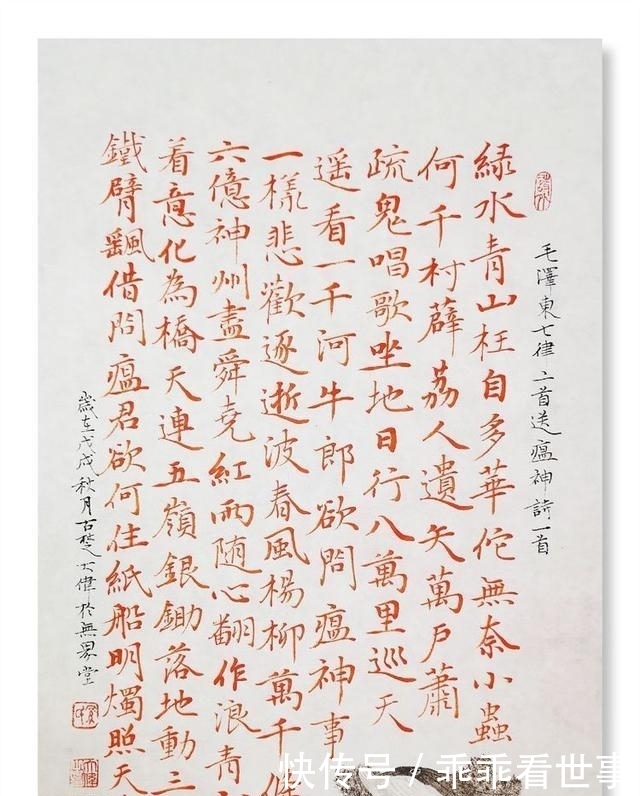 毛澤東七律二首送瘟神詩一首
緑水青山枉自多華佗無奈小蟲
何千村薜荔人遺矢萬戶蕭
疏鬼唱歌坐地日行八萬里巡天
遥看一千河牛郎欲問瘟神事
一樣悲歡逐逝波春風楊柳萬千條
六億神州盡舜堯紅雨随心翻作浪青
着意化為橋天連五嶺銀鋤落地動三
鐵臂飄借問瘟君欲何往紙船明燭照天
歲在戊戌秋月古楚大偉於無界堂
快传号 / 乖乖看世事